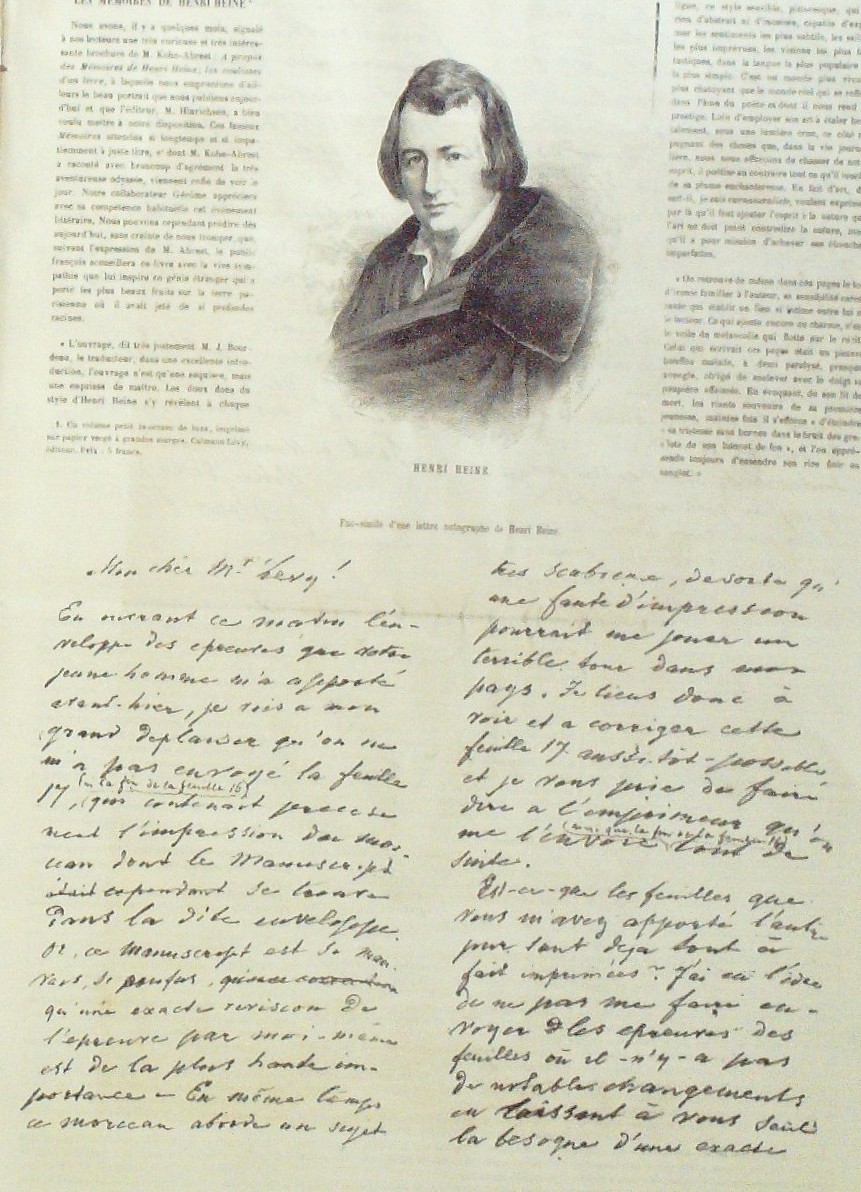 LES MÉMOIRES DE HENRI HEINE¹
Nous avons, il y a quelques mois, signalé
à nos lecteurs une très curieuse et très intéres-
sante brochure de M. Kohn-Abrest : A propos
des Mémoires de Henri Heine; les coulisses
d'un livre, à laquelle nous empruntons d'ail-
leurs le beau portrait que nous publions aujour-
d'hui et que l'éditeur, M. Hinrichsen, a bien
voulu mettre à notre disposition. Ces fameux
Mémoires attendus si longtemps et si impa-
tiemment à juste titre, et dont M. Kohn-Abrest
a raconté avec beaucoup d'agrément la très
aventureuse odyssée, viennent enfin de voir le
jour. Notre collaborateur Gérôme appréciera
avec sa compétence habituelle cet événement
littéraire. Nous pouvons cependant prédire dès
aujourd'hui, sans crainte de nous tromper que,
suivant l'expression de M. Abrest, le public
français accueillera ce livre avec la vive sym-
pathie que lui inspire ce génie étranger qui a
porté les plus beaux fruits sur la terre pa-
risienne où il avait jeté de si profondes
racines.
« L'ouvrage, dit très justement M. J. Bour-
deau, le traducteur, dans une excellente intro-
duction, l'ouvrage n'est qu'une esquisse, mais
une esquisse de maître. Les deux dons du
style d'Henri Heine s'y révèlent à chaque
1. Un volume petit in-octavo de luxe, imprimé
sur papier vergé à grandes marges. Calmann Lévy,
éditeur. Prix : 5 francs.
ligne, ce style sensible, pittoresque, qui
rien d'abstrait ni d'incolore, capable d'ex
mer les sentiments les plus subtils, les sail
les plus imprévues, les visions les plus fan
tastiques, dans la langue la plus populaire
la plus simple. C'est un monde plus vivant
plus chatoyant que le monde réel qui se reflè
dans l'âme du poète et dont il nous rend
prestige. Loin d'employer son art à étaler bru
talement, sous une lumière crue, ce côté
pugnant des choses que, dans la vie journa
lière, nous nous efforçons de chasser de notre
esprit, il poétise au contraire tout ce qu'il touche
de sa plume enchanteresse. En fait d'art,
sait-il, je suis surnaturaliste, voulant exprimer
par là qu'il faut ajouter l'esprit à la nature que
l'art ne doit point contredire la nature, mais
qu'il a pour mission d'achever ses ébauches
imparfaites.
« On retrouve de même dans ces pages le ton
d'ironie familier à l'auteur, sa sensibilité
qui établit un lien si intime entre lui et
le lecteur. Ce qui ajoute encore au charme, c'est
le voile de mélancolie qui flotte sur le récit.
Celui qui écrivait ces pages était un pauvre
malade, à demi paralysé, presque
aveugle, obligé de soulever avec le doigt sa
paupière affaissée. En évoquant, de son lit de
mort, les riants souvenirs de sa première
jeunesse, maintes fois il s'efforce « d'éteindre
« sa tristesse sans bornes dans le bruit des gre-
« lots de son bonnet de fou », et l'on appré-
hende toujours d'entendre son rire finir en
sanglot. »
HENRI HEINE
Fac-simile d'une lettre autographe de Henri Heine.
Mon cher Mr Levy!
En ouvrant ce matin l'en-
veloppe des epreuves que votre
jeune homme m'a apporté
avant-hier, je vois a mon
grand deplaisir qu'on ne
m'a pas envoyé la feuille
(ni la fin de la feuille 16)
17, qui contenait precise-
ment l'impression du mor-
ceau dont le Manuscript
était cependant se trouve
Dans la dite enveloppe.
Or, ce manuscript est si mau-
vais, si confus,
qu'une exacte revision de
l'epreuve par moi-même
est de la plus haute im-
portance – En même temps
ce morceau aborde un sujet
tres scabreux, de sorte qu'
une faute d'impression
pourrait me jouer un
terrible tour dans mon
pays. Je tiens donc à
voir et a corriger cette
feuille 17 aussitôt-possible,
et je vous prie de faire
dire a l'imprimeur qu'on
(ainsi que la fin de la feuille 16)
me l'envoie tout de
suite.
Est-ce-que les feuilles que
vous m'avez apporté l'autre
jour sont deja tout à
fait imprimées? J'ai eu l'idée
de ne pas me faire en-
voyer les epreuves des
feuilles où il-n'y-a pas
de notables changements
en laissant à vous seul
la besogne d'une exacte